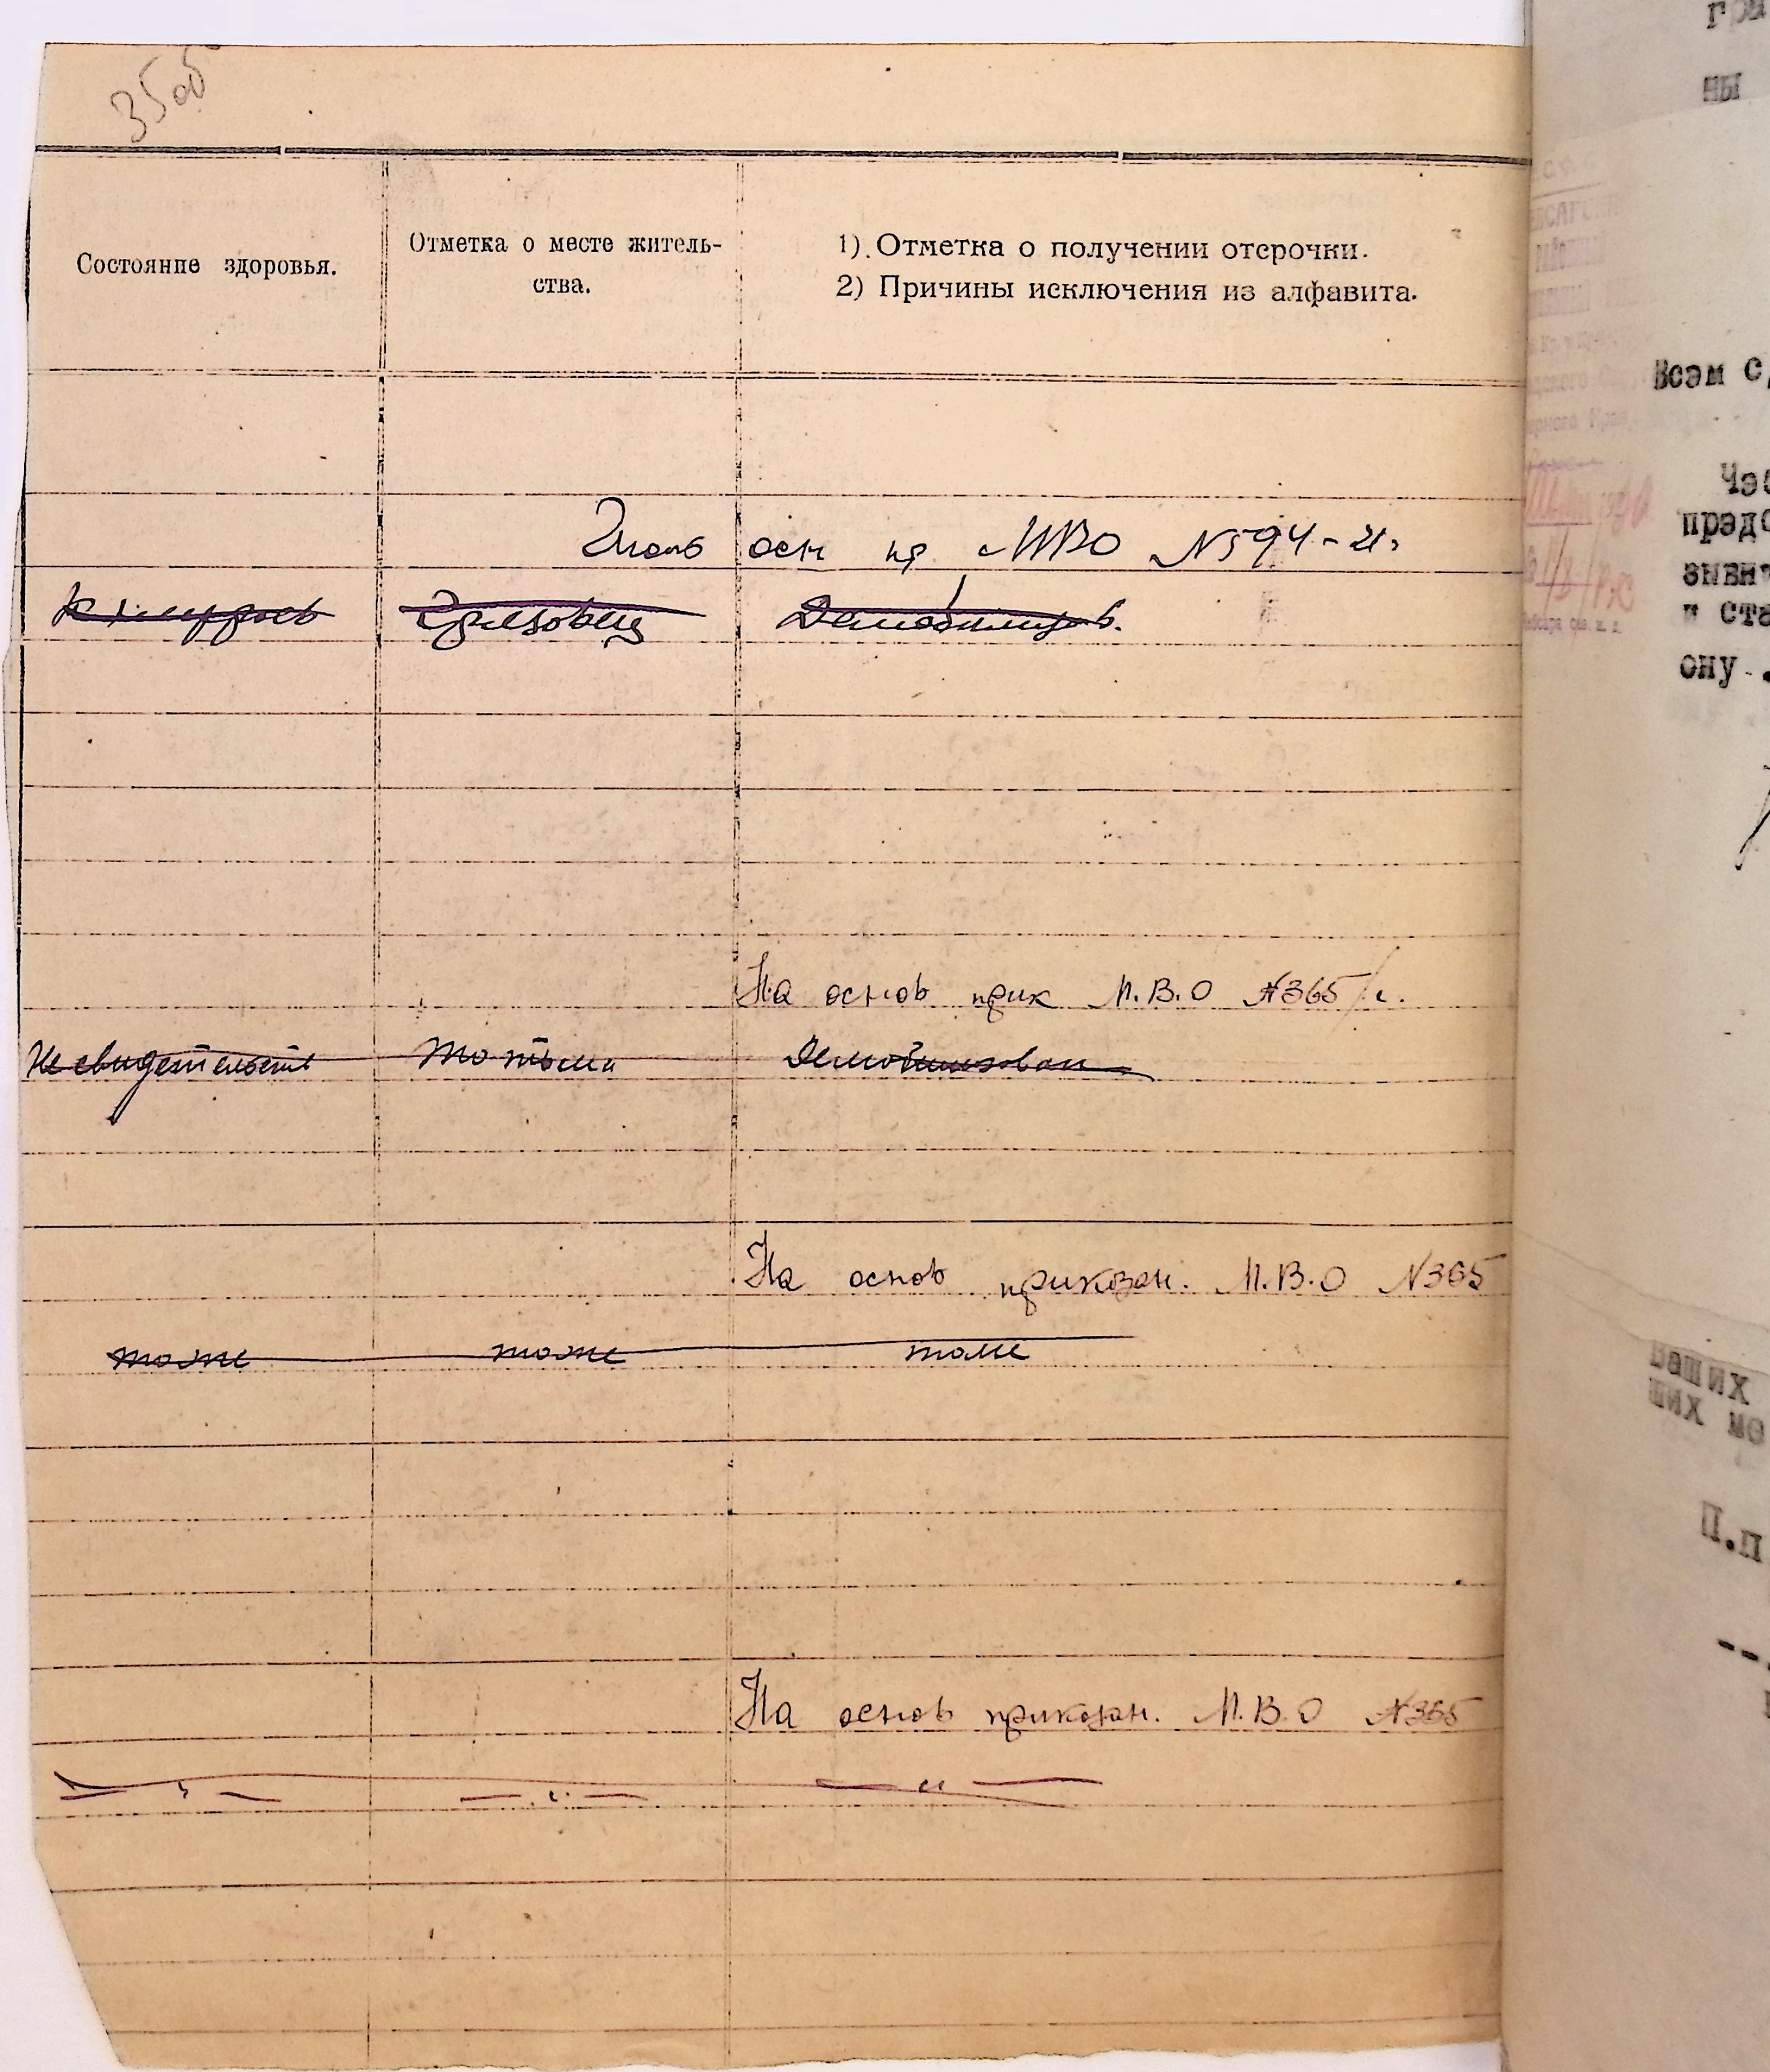 35об
Состояние здоровья.
Отметка о месте житель-
ства.
1) Отметка о получении отсрочки.
2) Причины исключения из алфавита.
осн пр МВО N594-21г
Грязовец Демобилиров.
На основ прик М.В.О №365/с.
Не свидетельств Тотьма Демобилизован
На основ приказан. М.В.О N365
тоже тоже тоже
На основ приказан. М.В.О №365
— " — — " — — " —
ны
Всем с
предо
и ста
ону.
ваших
ших
П.п